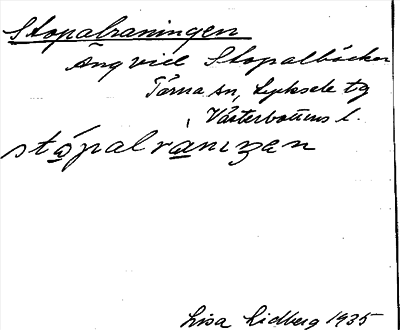 Stopalraningen
Äng vid Stopalbäcken
Tärna sn, Lyksele tg
Västerbottens l.
stǫ́palra̲nıŋən
Lisa Lidberg 1935